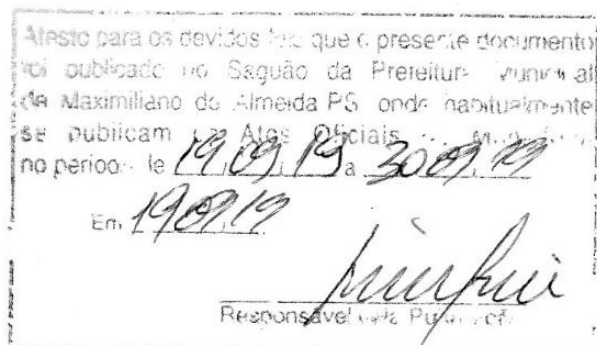 Atesto para os devidos que o presente documento
foi publicado no Saguão da Prefeitura Municipal
de Maximiliano de Almeida RS onde habitualmente
se publicam os Atos Oficiais
no período de 19/09/19 a 30/09/19
Em 19/09/19
Responsável pela